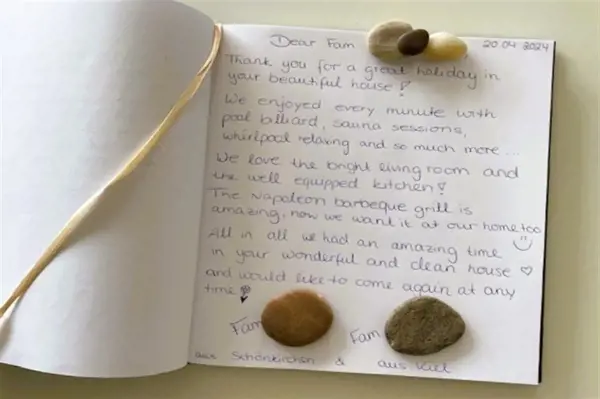 Dear Fam 20.04 2024
Thank you for a great holiday in
your beautiful house!
We enjoyed every minute with
pool billiard, sauna sessions,
whirlpool relaxing and so much more...
We love the bright living room and
the well equipped kitchen!
The Napoleon barbeque grill is
amazing, now we want it at our home too
All in all we had an amazing time
in your wonderful and clean house ♡
and would like to come again at any
time
Fam Fam
aus Schönkirchen & aus Kiel